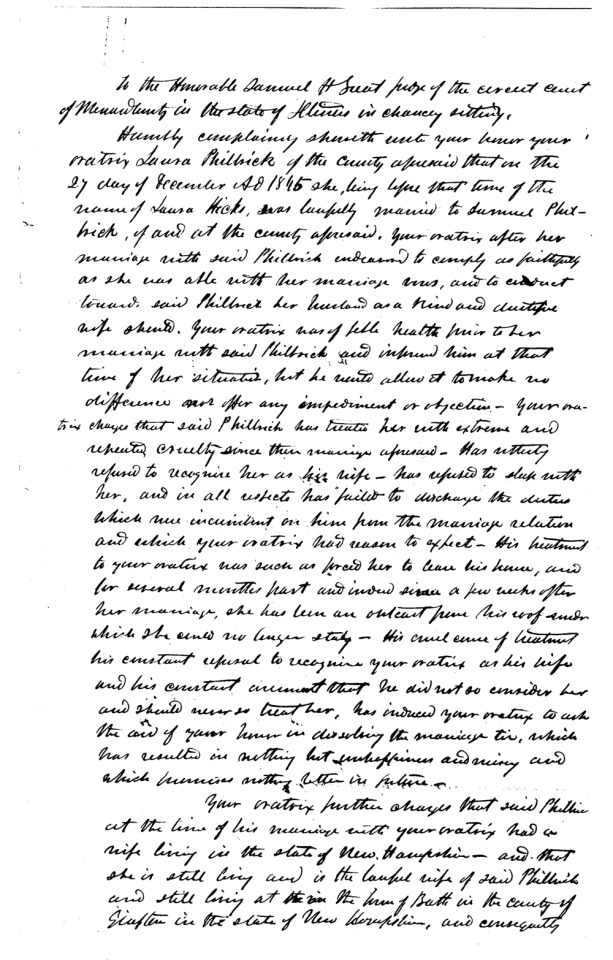 To the Honorable Samuel H Treat judge of the circuit court
of Menard County in the state of Illinois in chancery sitting.
Humbly complaining sheweth unto your honor your
oratrix Laura Philbrick of the county aforesaid that on the
27 day of December AD 1845 she, being before that time of the
name of Laura Hicks, was lawfully married to Samuel Phil-
brick, of and at the county aforesaid. Your oratrix after her
marriage with said Philbrick endeavored to comply as faithfully
as she was able with her marriage vows, and to conduct
towards said Philbrick her husband as a kind and dutiful
wife should. Your oratrix was of feble health prior to her
marriage with said Philbrick and informed him at that
time of her situation, but he would allow it to make no
difference nor offer any impediment or objection – Your ora-
trix charges that said Philbrick has treated her with extreme and
repeated cruelty since their marriage aforesaid – Has utterly
refused to recognize her as his wife – has refused to sleep with
her, and in all respects has failed to discharge the duties
which were incumbent on him from the marriage relation
and which your oratrix had reason to expect – His treatment
to your oratrix was such as forced her to leave his house, and
for several months past and indeed since a few weeks after
her marriage, she has been an outcast from his roof under
which she could no longer stay – His cruel course of treatment
his constant refusal to recognize your oratrix as his wife
and his constant avowment that he did not so consider her
and should never so treat her, has induced your oratrix to ask
the aid of your honor in dissolving the marriage tie, which
has resulted in nothing but unhappiness and misery and
which promises nothing better in future –
Your oratrix further charges that said Philbrick
at the time of his marriage with your oratrix had a
wife living in the state of New Hampshire – and that
she is still living and is the lawful wife of said Philbrick
and still living at the town of Bath in the county of
Grafton in the state of New Hampshire, and consequently